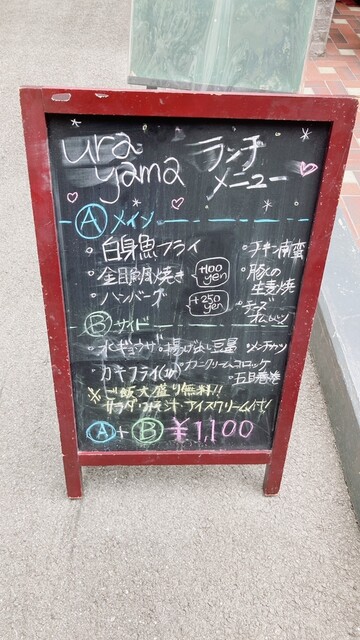 ura yama ランチメニュー
Ⓐ メイン
・白身魚フライ ・チキン南蛮
・金目鯛焼き +100 yen ・豚の生姜焼
・ハンバーグ +250 yen ・チーズオムレツ
Ⓑ サイド
・水ギョウザ ・揚げ出し豆腐 ・メンチカツ
・カキフライ ・カニクリームコロッケ ・五目春巻
※ご飯大盛り無料!!
サラダ・みそ汁・アイスクリーム付!
Ⓐ+Ⓑ ¥1,100